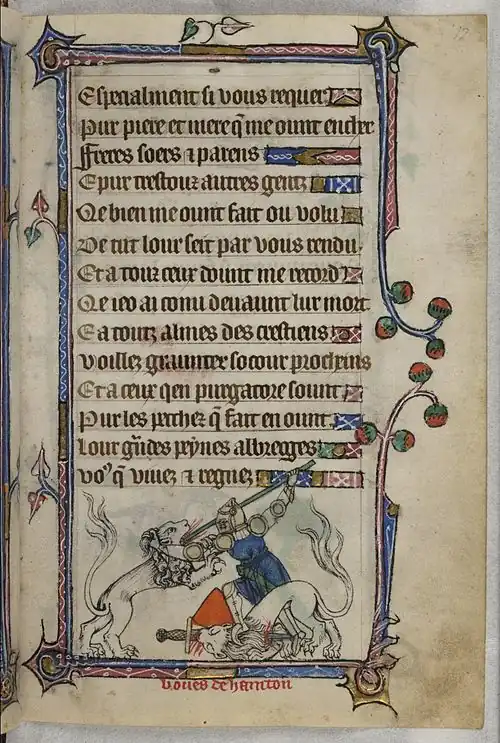 Especialment si vous requer
Pur piere et mere q̃ me ount encher
ffreres soers ⁊ parens
E pur trestouz autres gentz
Qe bien me ount fait ou volu
De tut lour seit par vous rendu
Et a touz ceux dount me record
Qe ieo ai conu deuaunt lur mort
E a toutz almes des crestiens
Voillez graunter socour procheins
Et a ceux qen purgatore sount
Pur les pecchez q̃ fait en ount
Lour g̃ndes peynes albregges
vo⁹ q̃ viuez ⁊ regnez
boues de hamton